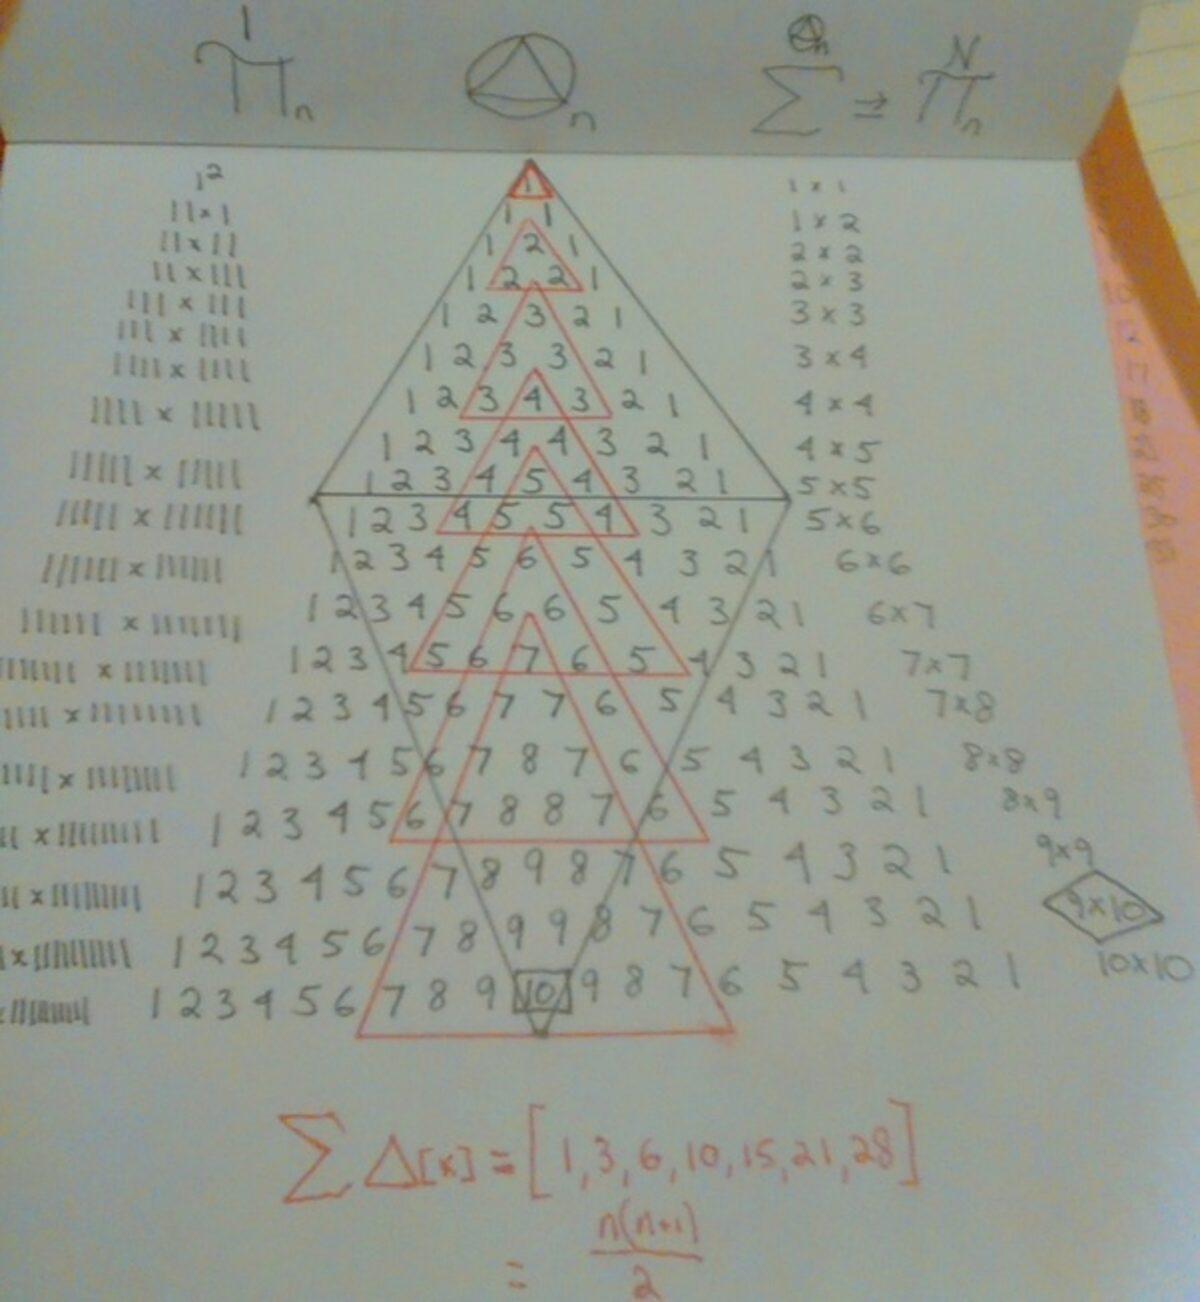 1 ∏ n
n
∑ n ⇒ N ∏ n
1² 1 1 × 1
11 × 1 1 1 1 × 2
11 × 11 1 2 1 2 × 2
11 × 111 1 2 2 1 2 × 3
111 × 111 1 2 3 2 1 3 × 3
111 × 1111 1 2 3 3 2 1 3 × 4
1111 × 1111 1 2 3 4 3 2 1 4 × 4
1111 × 11111 1 2 3 4 4 3 2 1 4 × 5
11111 × 11111 1 2 3 4 5 4 3 2 1 5 × 5
11111 × 111111 1 2 3 4 5 5 4 3 2 1 5 × 6
111111 × 111111 1 2 3 4 5 6 5 4 3 2 1 6 × 6
111111 × 1111111 1 2 3 4 5 6 6 5 4 3 2 1 6 × 7
1111111 × 1111111 1 2 3 4 5 6 7 6 5 4 3 2 1 7 × 7
1 2 3 4 5 6 7 7 6 5 4 3 2 1 7 × 8
1 2 3 4 5 6 7 8 7 6 5 4 3 2 1 8 × 8
1 2 3 4 5 6 7 8 8 7 6 5 4 3 2 1 8 × 9
1 2 3 4 5 6 7 8 9 8 7 6 5 4 3 2 1 9 × 9
1 2 3 4 5 6 7 8 9 9 8 7 6 5 4 3 2 1 9 × 10
1 2 3 4 5 6 7 8 9 10 9 8 7 6 5 4 3 2 1 10 × 10
∑ Δ[x] = [1, 3, 6, 10, 15, 21, 28]
= n(n+1)
2